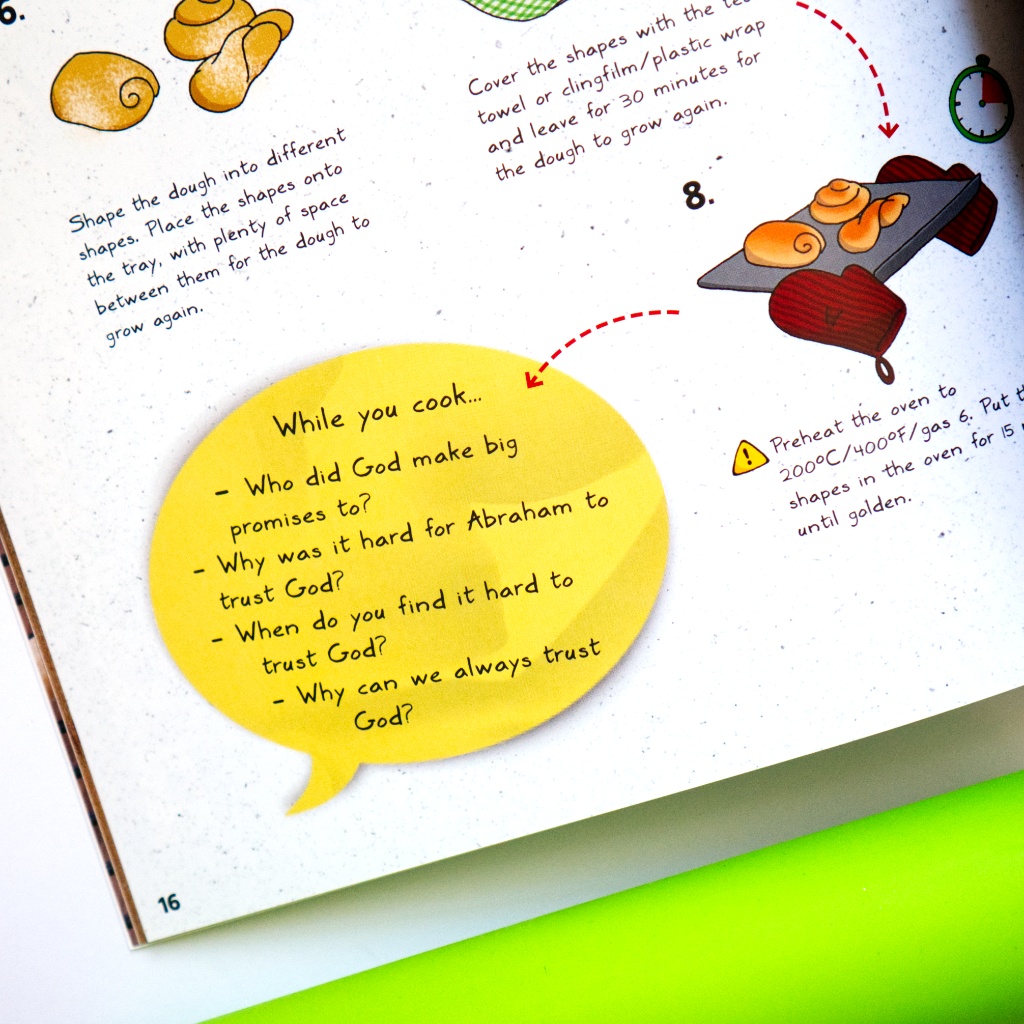 6.
Shape the dough into different
shapes. Place the shapes onto
the tray, with plenty of space
between them for the dough to
grow again.
Cover the shapes with the
towel or clingfilm/plastic wrap
and leave for 30 minutes for
the dough to grow again.
8.
Preheat the oven to
200°C/400°F/gas 6. Put
shapes in the oven for 15
until golden.
While you cook...
- Who did God make big
promises to?
- Why was it hard for Abraham to
trust God?
- When do you find it hard to
trust God?
- Why can we always trust
God?
16